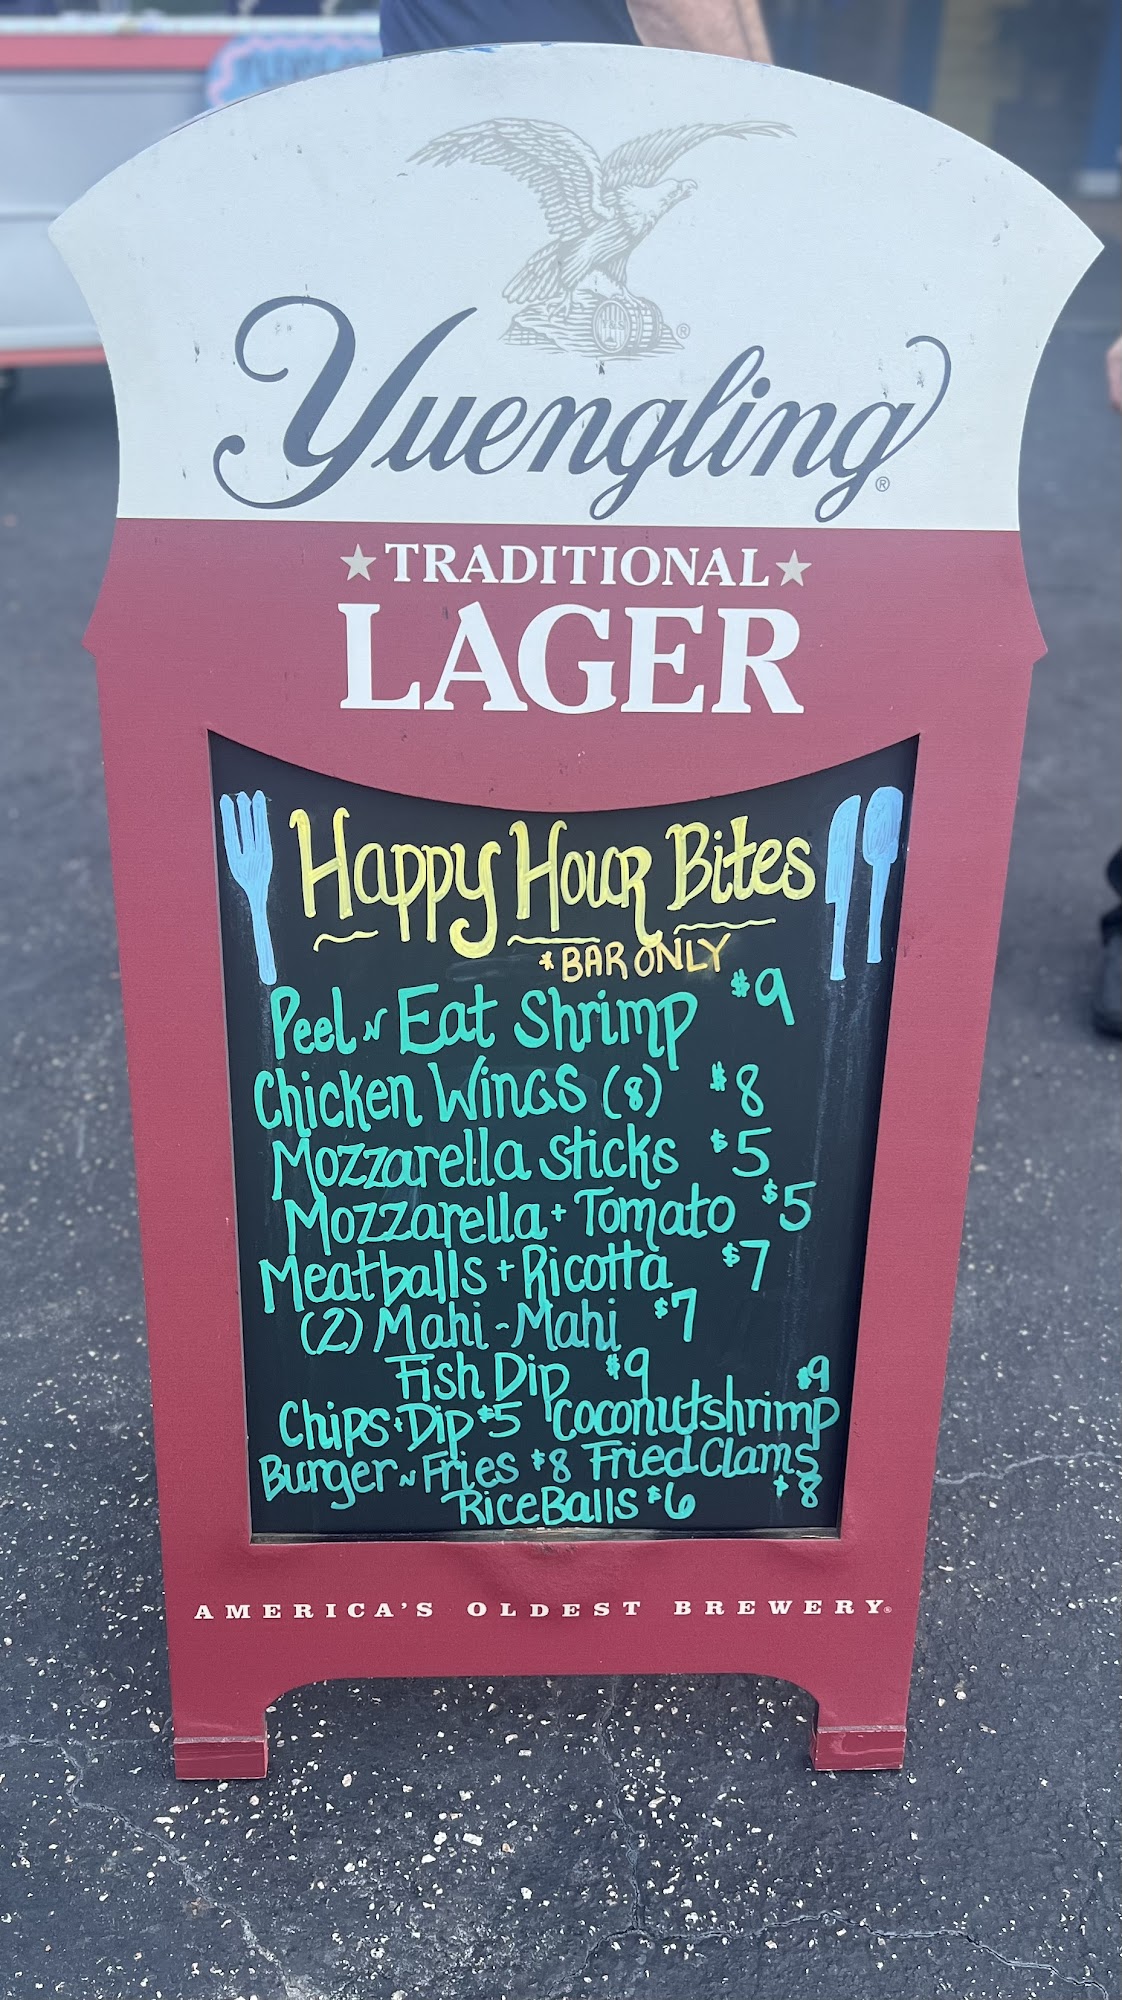 Yuengling®
TRADITIONAL
LAGER
Happy Hour Bites
*BAR ONLY
Peel N Eat Shrimp $9
Chicken Wings (8) $8
Mozzarella Sticks $5
Mozzarella + Tomato $5
Meatballs + Ricotta $7
(2) Mahi-Mahi $7
Fish Dip $9
Chips + Dip $5 Coconut shrimp $9
Burger N Fries $8 Fried Clams $8
Rice Balls $6
AMERICA'S OLDEST BREWERY®